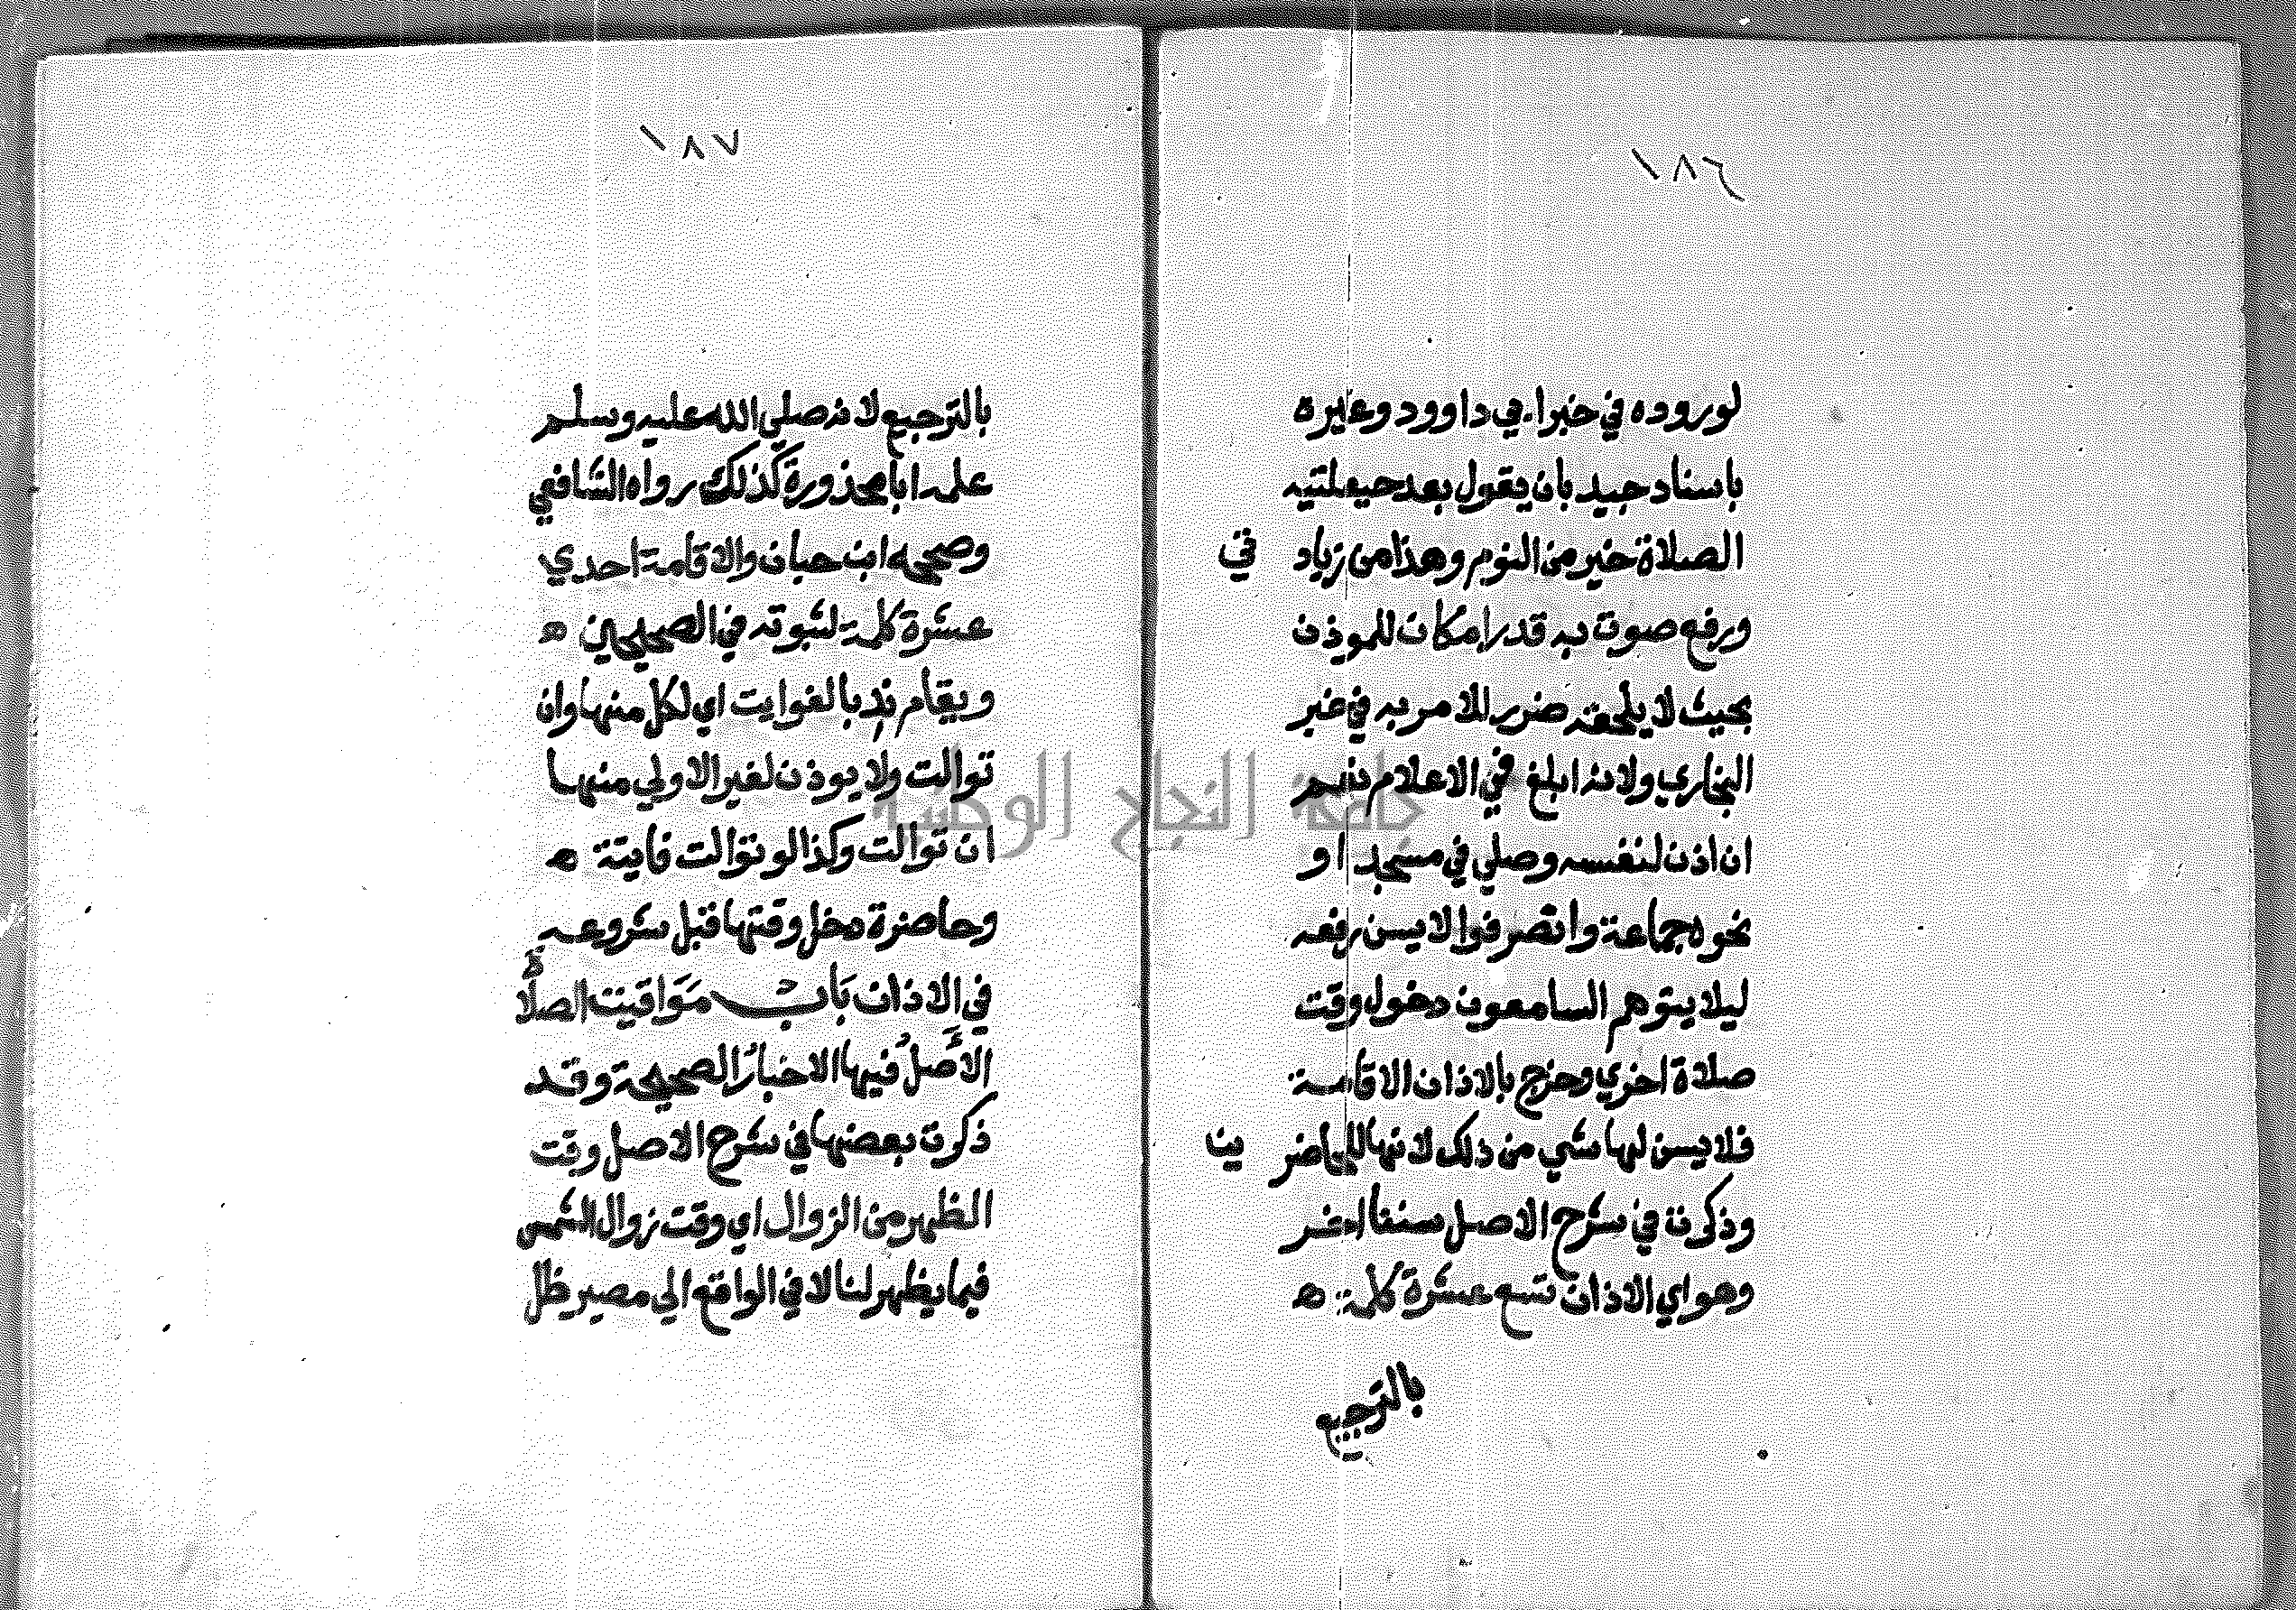 ١٨٦
لوروده في خبر ابي داوود وغيره
باسناد جيد بان يقول بعد حيعلتيه
الصلاة خير من النوم وهذا من زيادتي
ورفع صوت به قدر امكان للموذن
بحيث لا يلحقه ضرر للامر به في خبر
البخاري ولانه ابلغ في الاعلام نعم
ان اذن لنفسه وصلي في مسجد او
نحوه جماعة وانصرفوا لا يسن رفعه
ليلا يتوهم السامعون دخول وقت
صلاة اخري وخرج بالاذان الاقامة
فلا يسن لها شي من ذلك لانها للحاضرين
وذكرت في شرح الاصل سننا اخر
وهو اي الاذان تسع عشرة كلمة ه
بالترجيع
١٨٧
بالترجيع لانه صلي الله عليه وسلم
علمه ابا محذورة كذلك رواه الشافعي
وصححه ابن حبان والاقامة احدي
عشرة كلمة لثبوته في الصحيحين ه
ويقام ندبا لفوايت اي لكل منها وان
توالت ولا يوذن لغير الاولي منها
ان توالت وكذا لو توالت فايتة ه
وحاضرة دخل وقتها قبل شروعه
في الاذان بَاب مَوَاقيت الصلاة
الأَصلُ فيها الاخبارُ الصحيحة وقد
ذكرت بعضها في شرح الاصل وقت
الظهر من الزوال اي وقت زوال الشمس
فيما يظهر لنا لا في الواقع الي مصير ظل
جامعة النجاح الوطنية